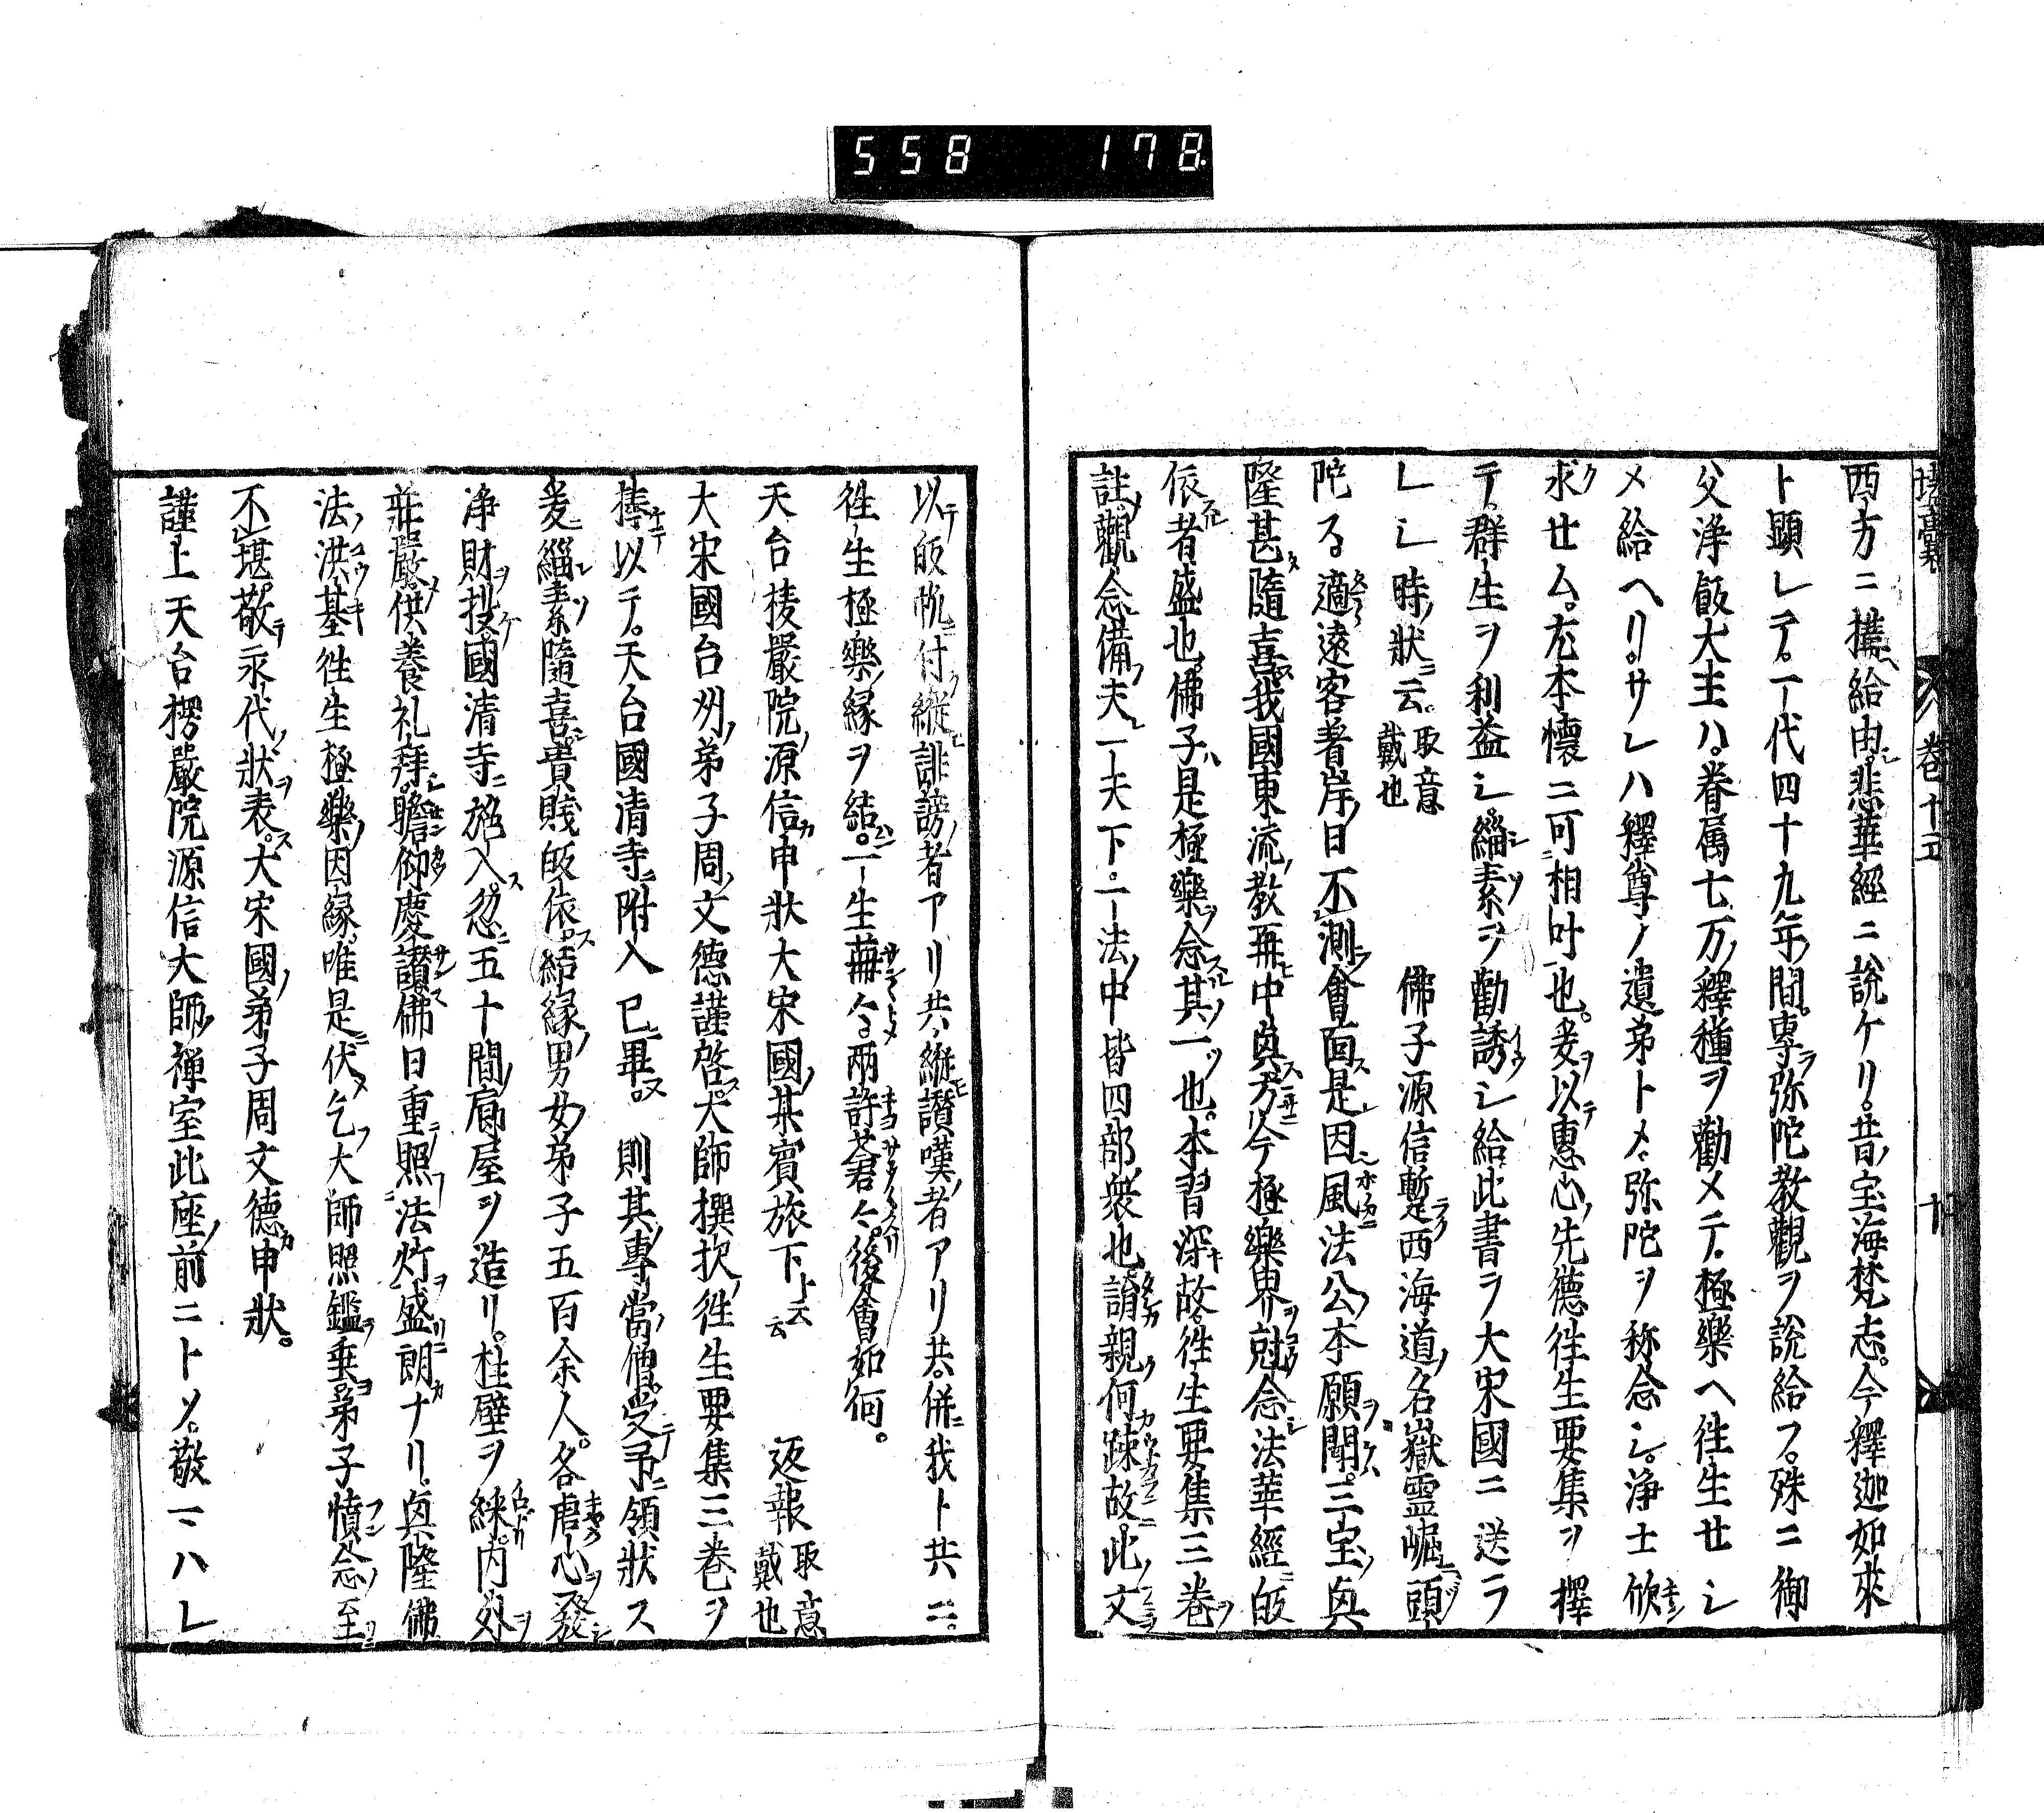 558 178
西方ニ攝給由。悲華經ニ說ケリ。昔宝海梵志。今釋迦如來
ト顕レテ。一代四十九年間。專弥陀教觀ヲ說給フ。殊ニ御
父浄飯大王ハ。眷属七万釋種ヲ勸メテ。極樂ヘ往生セシ
メ給ヘリ。サレハ釋尊ノ遺弟トメ。弥陀ヲ称念シ。浄土欣
求セム。尤本懷ニ可相叶也。爰以テ惠心先德往生要集ヲ擇
テ。群生ヲ利益シ緇素ヲ勸誘シ給此書ヲ大宋國ニ送ラ
レシ時狀云。取意戴也 佛子源信暫西海道名嶽靈崛頭
陀る。適遠客着岸日不測會面是因風法公本願聞。三宝
隆甚隨喜我國東流教再中今極樂界尅念法華經皈
依者盛也。佛子是極樂念其一也。本習深故。往生要集三卷
註。觀念備夫一夫下。一法中皆四部衆也。誰親何踈故。此文
卷十五 十
以皈帆付縱誹謗者アリ共縱讃嘆者アリ共。併我ト共ニ。
往生極樂縁ヲ結。一生再今。兩許若今。後會如何。
天台楞嚴院源信申狀大宋國某賓旅下ト云云 返報 取意戴也
大宋國台州弟子周文德謹啓。大師撰抜往生要集三巻ヲ
捧以テ。天台國清寺附入已畢。則其專當僧。受予領狀ス
爰緇素隨喜貴賎皈依。結縁男女弟子五百余人。各虔心發
浄財投國清寺施入。忽五十間廊屋ヲ造リ。柱壁ヲ綵。内外
莊嚴。供養礼拜。瞻仰慶讃。佛日重照法灯盛朗ナリ。隆佛
法洪基往生極樂因縁。唯是伏乞大師照鑑垂弟子憤念至
不堪。敬永代狀表。大宋國弟子周文德申狀。
謹上天台楞嚴院源信大師禅室此座前ニトソ。敬一ハレ